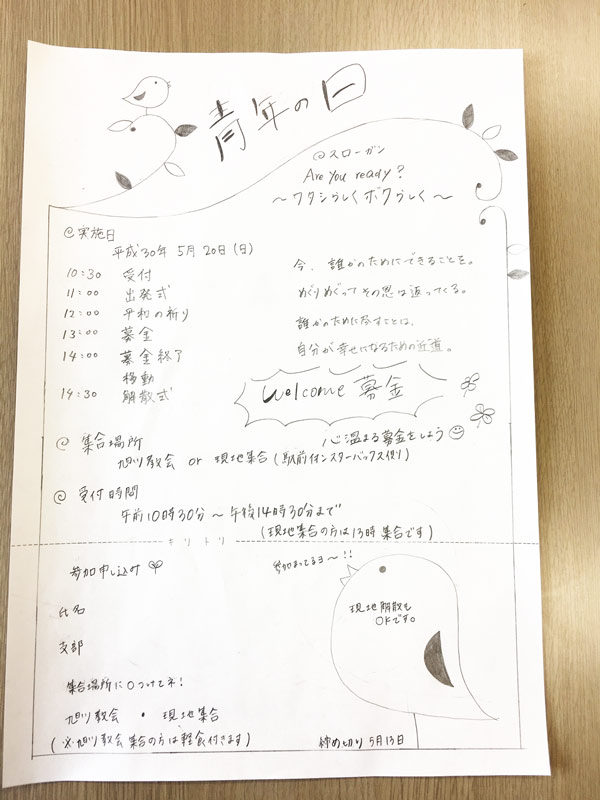 青年の日
@スローガン
Are you ready?
〜ワタシらしくボクらしく〜
@実施日
平成30年 5月20日(日)
10:30 受付
11:00 出発式
12:00 平和の祈り
13:00 募金
14:00 募金終了
移動
14:30 解散式
今、誰かのためにできることを。
めぐりめぐってその恩は返ってくる。
誰かのために尽すことは、
自分が幸せになるための近道。
Welcome 募金
心温まる募金をしよう
@ 集合場所
旭川教会 or 現地集合(駅前スターバックス辺り)
@ 受付時間
午前10時30分〜午後14時30分まで
(現地集合の方は13時集合です)
キリトリ
参加申し込み
参加まってるヨ〜!!
氏名
現地解散も
OKです。
支部
集合場所に○つけてネ!
旭川教会 ・ 現地集合
(※旭川教会集合の方は軽食付きます)
締め切り 5月13日